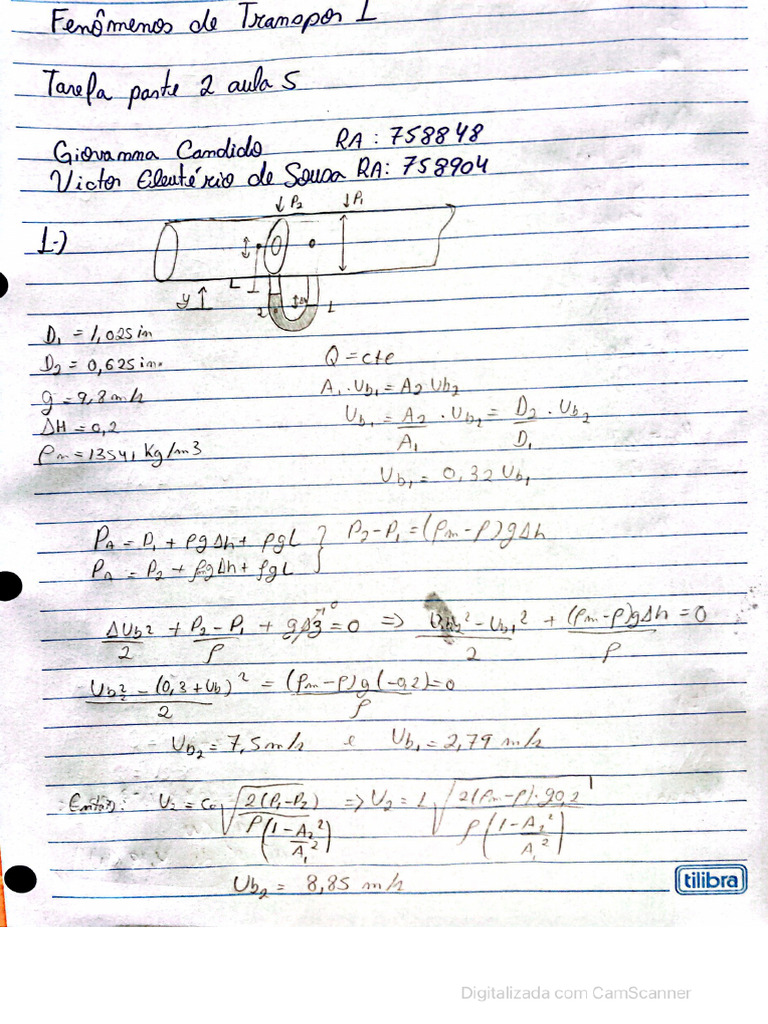 Fenômenos de Transpor 1
Tarefa parte 2 aula 5
Giovanna Candido RA : 758848
Victor Eleutério de Sousa RA: 758904
1-)
↓ P2 ↓ P1
y ↑ L 2 Δh L
D1 = 1,025 in
D2 = 0,625 in.
g = 9,8 m/s
ΔH = 0,2
ρm = 13541 Kg/m3
Q = cte
A1 . Ub1 = A2 Ub2
Ub1 = A2/A1 . Ub2 = D2/D1 . Ub2
Ub1 = 0,32 Ub1
PA = P1 + ρgΔh + ρgL } P2 - P1 = (ρm - ρ)gΔh
PA = P2 + ρmgΔh + ρgL
ΔUb²/2 + P2 - P1/ρ + gΔz→0 = 0 => Ub2² - Ub1²/2 + (ρm - ρ)gΔh/ρ = 0
Ub2² - (0,3+Ub)²/2 = (ρm - ρ)g(-0,2)/ρ = 0
Ub2 = 7,5 m/s e Ub1 = 2,79 m/s
Então: U2 = Co √2(P1-P2)/ρ(1 - A2²/A1²) => U2 = 1 √2(ρm - ρ).g0,2/ρ(1 - A2²/A1²)
Ub2 = 8,85 m/s
tilibra
Digitalizada com CamScanner